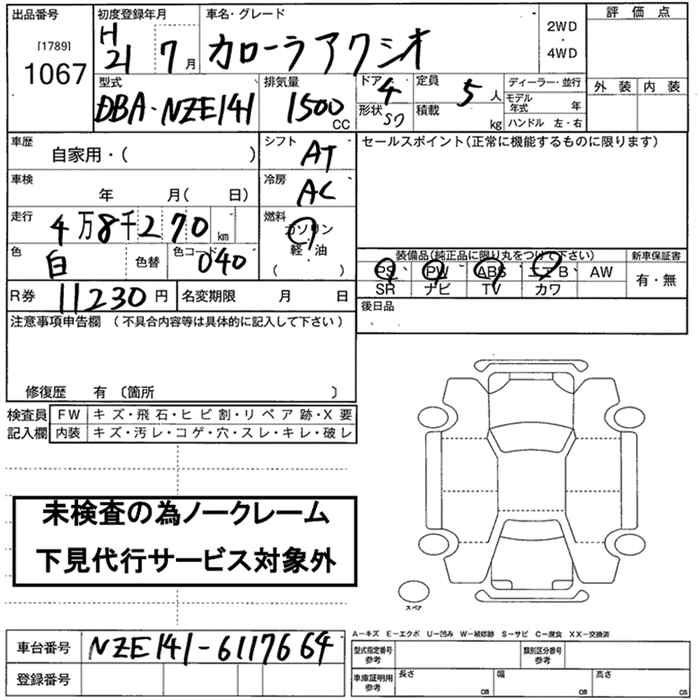 出品番号 初度登録年月 車名・グレード 評価点
[1789] H 2WD
1067 21 7月 カローラアクシオ ・
4WD
型式 排気量 ドア 4 定員 ディーラー・並行 外装 内装
DBA-NZE141 1500 CC 形状 SD 積載 5人 kg モデル年式 年
ハンドル 左・右
車歴 シフト セールスポイント(正常に機能するものに限ります)
自家用・( ) AT
車検 冷房
年 月( 日) AC
走行 燃料
4万8千270km ガソリン
軽・油
( )
色 色替 色コード 装備品(純正品に限り丸をつけて下さい) 新車保証書
白 040 PS PW ABS エアB AW 有・無
SR ナビ TV カワ
R券 11230円 名変期限 月 日 後日品
注意事項申告欄 (不具合内容等は具体的に記入して下さい)
修復歴 有 〔箇所 〕
検査員 FW キズ・飛石・ヒビ割・リペア跡・X要
記入欄 内装 キズ・汚レ・コゲ・穴・スレ・キレ・破レ
未検査の為ノークレーム
下見代行サービス対象外
スペア
A−キズ E−エクボ U−凹み W−補修跡 S−サビ C−腐食 XX−交換済
車台番号 NZE141-6117664 型式指定番号 参考 類別区分番号 参考
登録番号 車庫証明用 参考 長さ cm 幅 cm 高さ cm